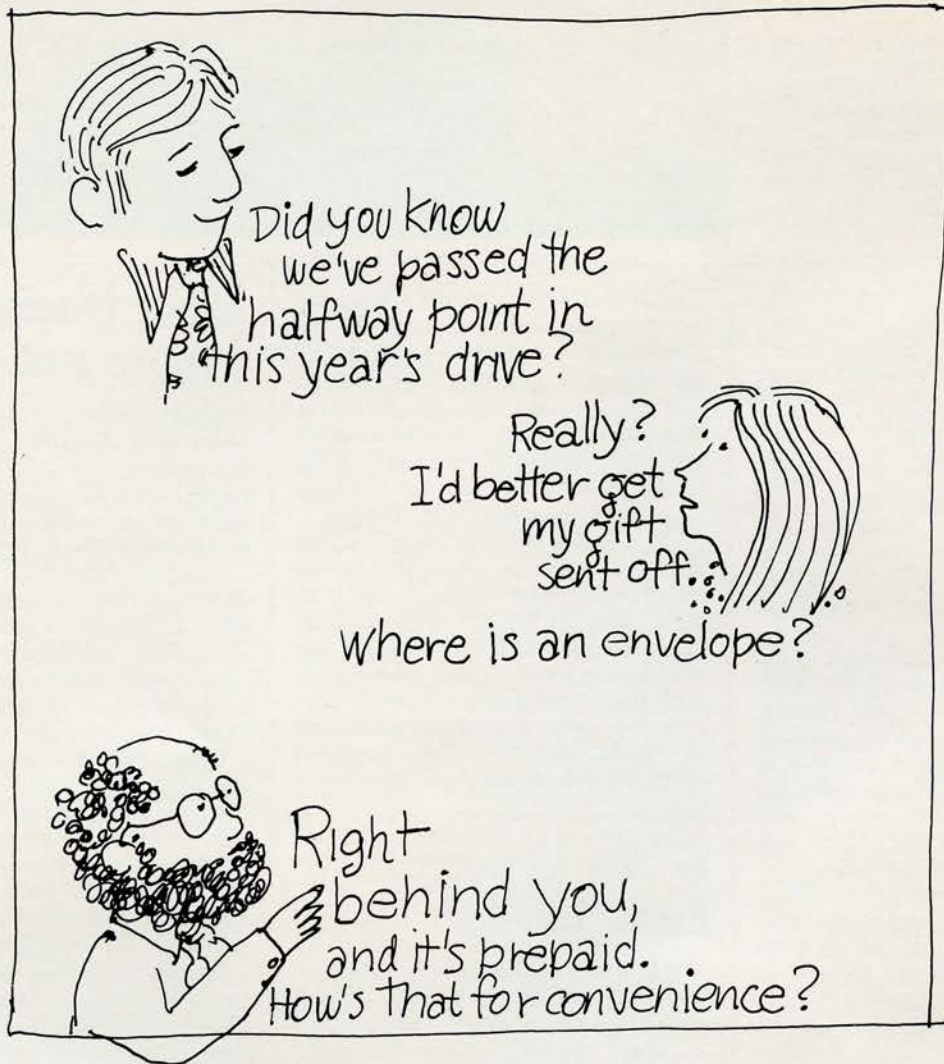 Did you know
we've passed the
halfway point in
this year's drive?
Really?
I'd better get
my gift
sent off.
Where is an envelope?
Right
behind you,
and it's prepaid.
How's that for convenience?